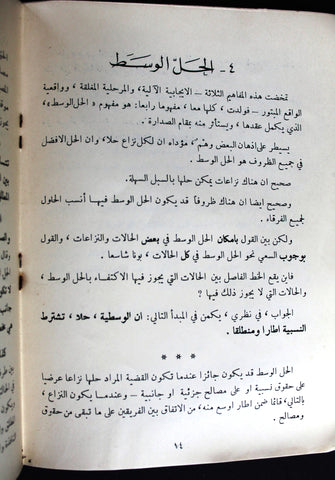 ٤ - الحل الوسط
تمخضت هذه المفاهيم الثلاثة - الايجابية الآلية، والمرحلية المغلقة ، وواقعية
الواقع المبتور - فولدت ، كلها معا ، مفهوما رابعا: هو مفهوم «الحل الوسط» ،
الذي يكمل عقدها ، ويستأثر منه بمقام الصدارة .
يسيطر على اذهان البعض وهْمٌ ، مؤداه ان لكل نزاع حلا، وان الحل الافضل
في جميع الظروف هو الحل الوسط .
صحيح ان هناك نزاعات يمكن حلها بالسبل السهلة.
وصحيح ايضا ان هناك ظروفاً قد يكون الحل الوسط فيها أنسب الحلول
لجميع الفرقاء .
ولكن بين القول بامكان الحل الوسط في بعض الحالات والنزاعات ، والقول
بوجوب السعي نحو الحل الوسط في كل الحالات ، بونا شاسعا .
فاين يقع الخط الفاصل بين الحالات التي يجوز فيها الاكتفاء بالحل الوسط ،
والحالات التي لا يجوز ذلك فيها ؟
الجواب ، في نظري ، يكمن في المبدأ التالي: ان الوسطية ، حلا ، تشترط
النسبية اطارا ومنطلقا .
* * *
الحل الوسط قد يكون جائزا عندما تكون القضية المراد حلها نزاعا عرضيا
على حقوق نسبية او على مصالح جزئية او جانبية - وعندما يكون النزاع ،
بالتالي، قائما ضمن اطار اوسع منه ، من الاتفاق بين الفريقين على ما تبقى من حقوق
ومصالح .
١٤